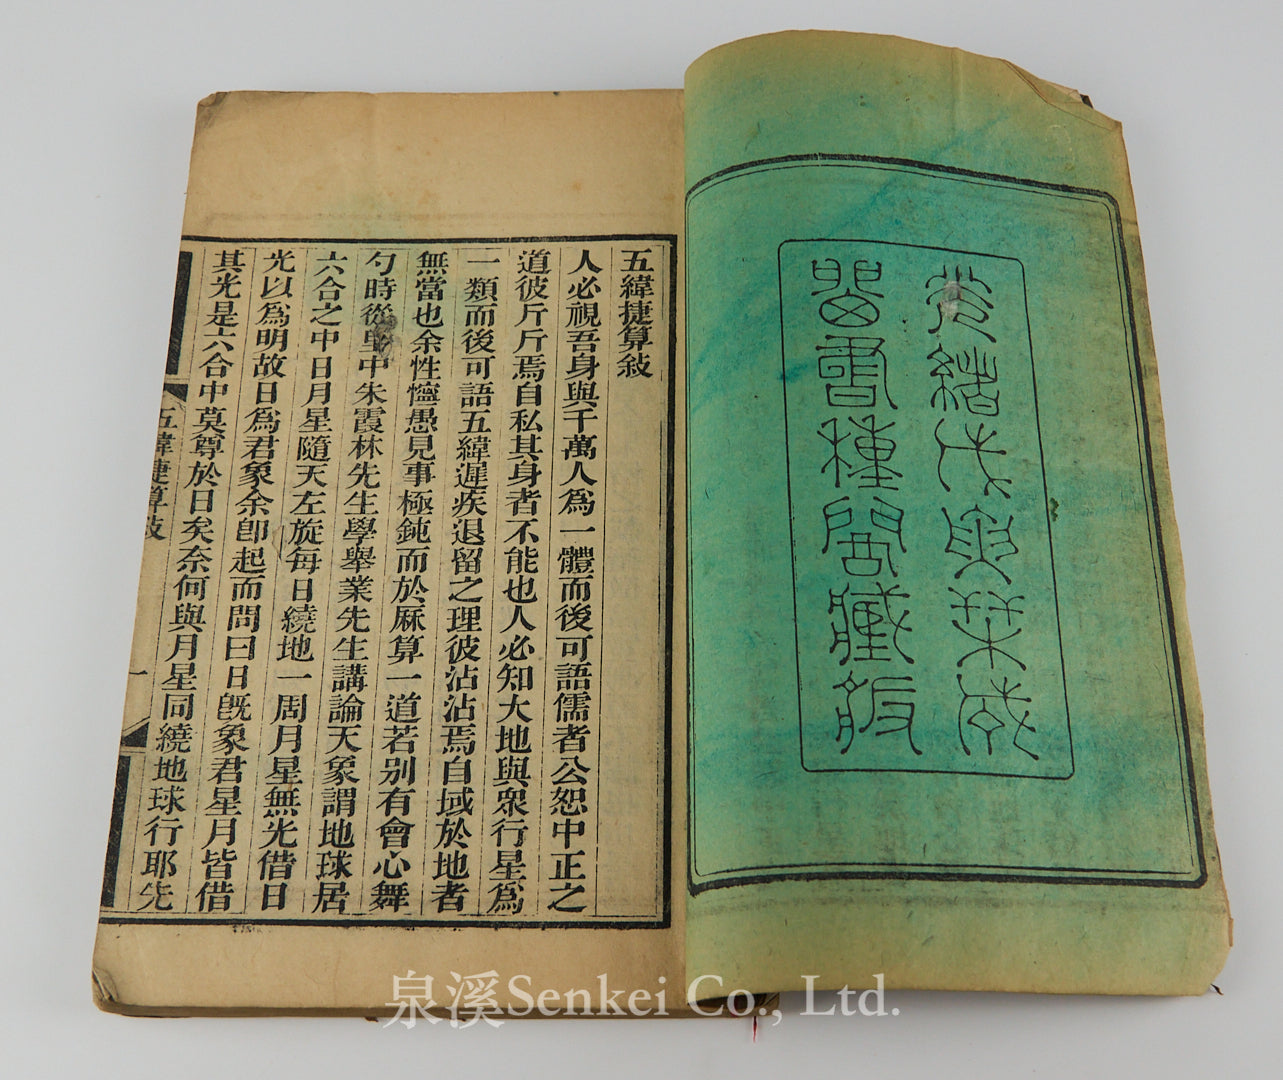 光緒戊寅栞成
留書種閣藏版
五緯捷算敍
人必視吾身與千萬人爲一體而後可語儒者公恕中正之
道彼斤斤焉自私其身者不能也人必知大地與衆行星爲
一類而後可語五緯遲疾退留之理彼沾沾焉自域於地者
無當也余性懧愚見事極鈍而於厤算一道若別有會心舞
勺時從里中朱霞林先生學舉業先生講論天象謂地球居
六合之中日月星隨天左旋每日繞地一周月星無光借日
光以爲明故日爲君象余卽起而問曰日旣象君星月皆借
其光是六合中莫尊於日矣奈何與月星同繞地球行耶先
五緯捷算敍 一
泉溪Senkei Co., Ltd.